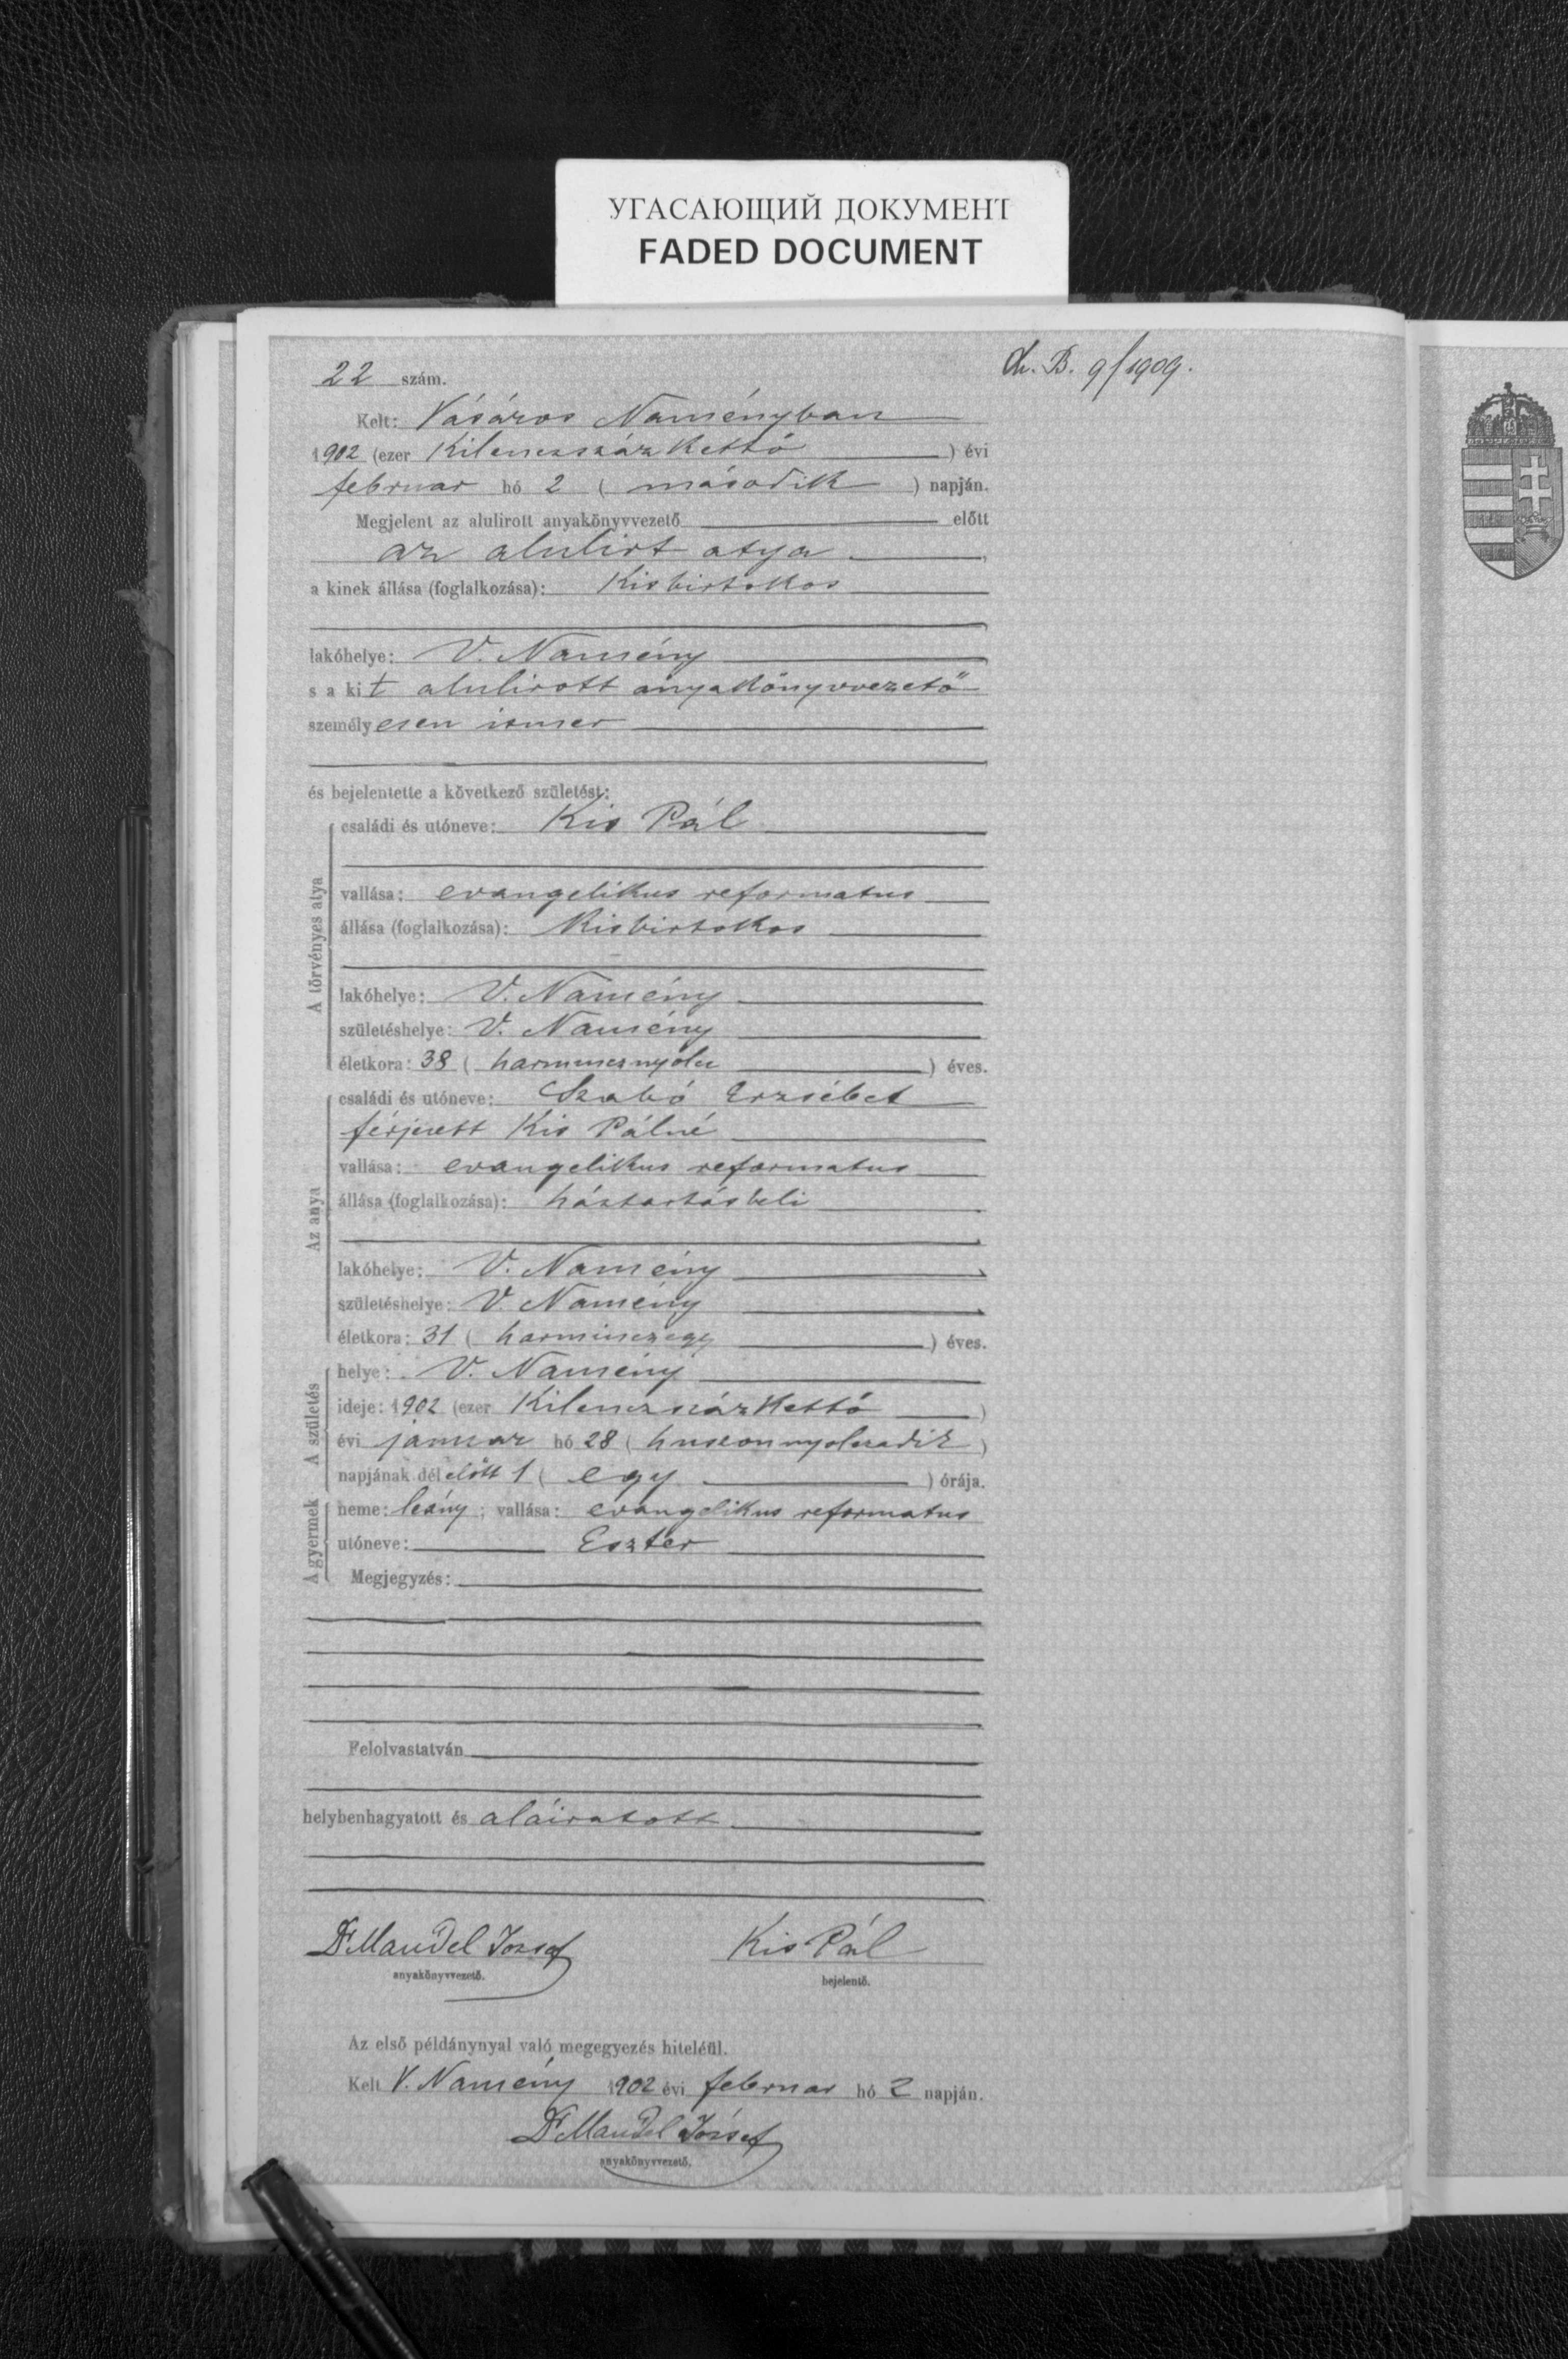 УГАСАЮЩИЙ ДОКУМЕНТ
FADED DOCUMENT
22 szám.
B. 9/1909.
Kelt: Vásáros Naményban
1902 (ezer Kilenczszáz Kettő ) évi
februar hó 2 ( második ) napján.
Megjelent az alulirott anyakönyvvezető előtt
az alulirt atya
a kinek állása (foglalkozása): Kisbirtokos
lakóhelye: V. Namény
s a kit alulirott anyakönyvvezető
személyesen ismer
és bejelentette a következő születést:
A törvényes atya
családi és utóneve: Kis Pál
vallása: evangelikus reformatus
állása (foglalkozása): Kisbirtokos
lakóhelye: V. Namény
születéshelye: V. Namény
életkora: 38 ( harmincznyolcz ) éves.
Az anya
családi és utóneve: Szabó Erzsébet
férjezett Kis Pálné
vallása: evangelikus reformatus
állása (foglalkozása): háztartásbeli
lakóhelye: V. Namény
születéshelye: V. Namény
életkora: 31 ( harminczegy ) éves.
A születés
helye: V. Namény
ideje: 1902 (ezer Kilenczszáz Kettő )
évi januar hó 28 ( huszonnyolczadik )
napjának dél előtt 1 ( egy ) órája.
A gyermek
neme: leány; vallása: evangelikus reformatus
utóneve: Eszter
Megjegyzés:
Felolvastatván
helybenhagyatott és aláiratott
Dr Mandel József
Kis Pál
anyakönyvvezető.
bejelentő.
Az első példánynyal való megegyezés hiteléül.
Kelt V. Namény 1902 évi februar hó 2 napján.
Dr Mandel József
anyakönyvvezető.